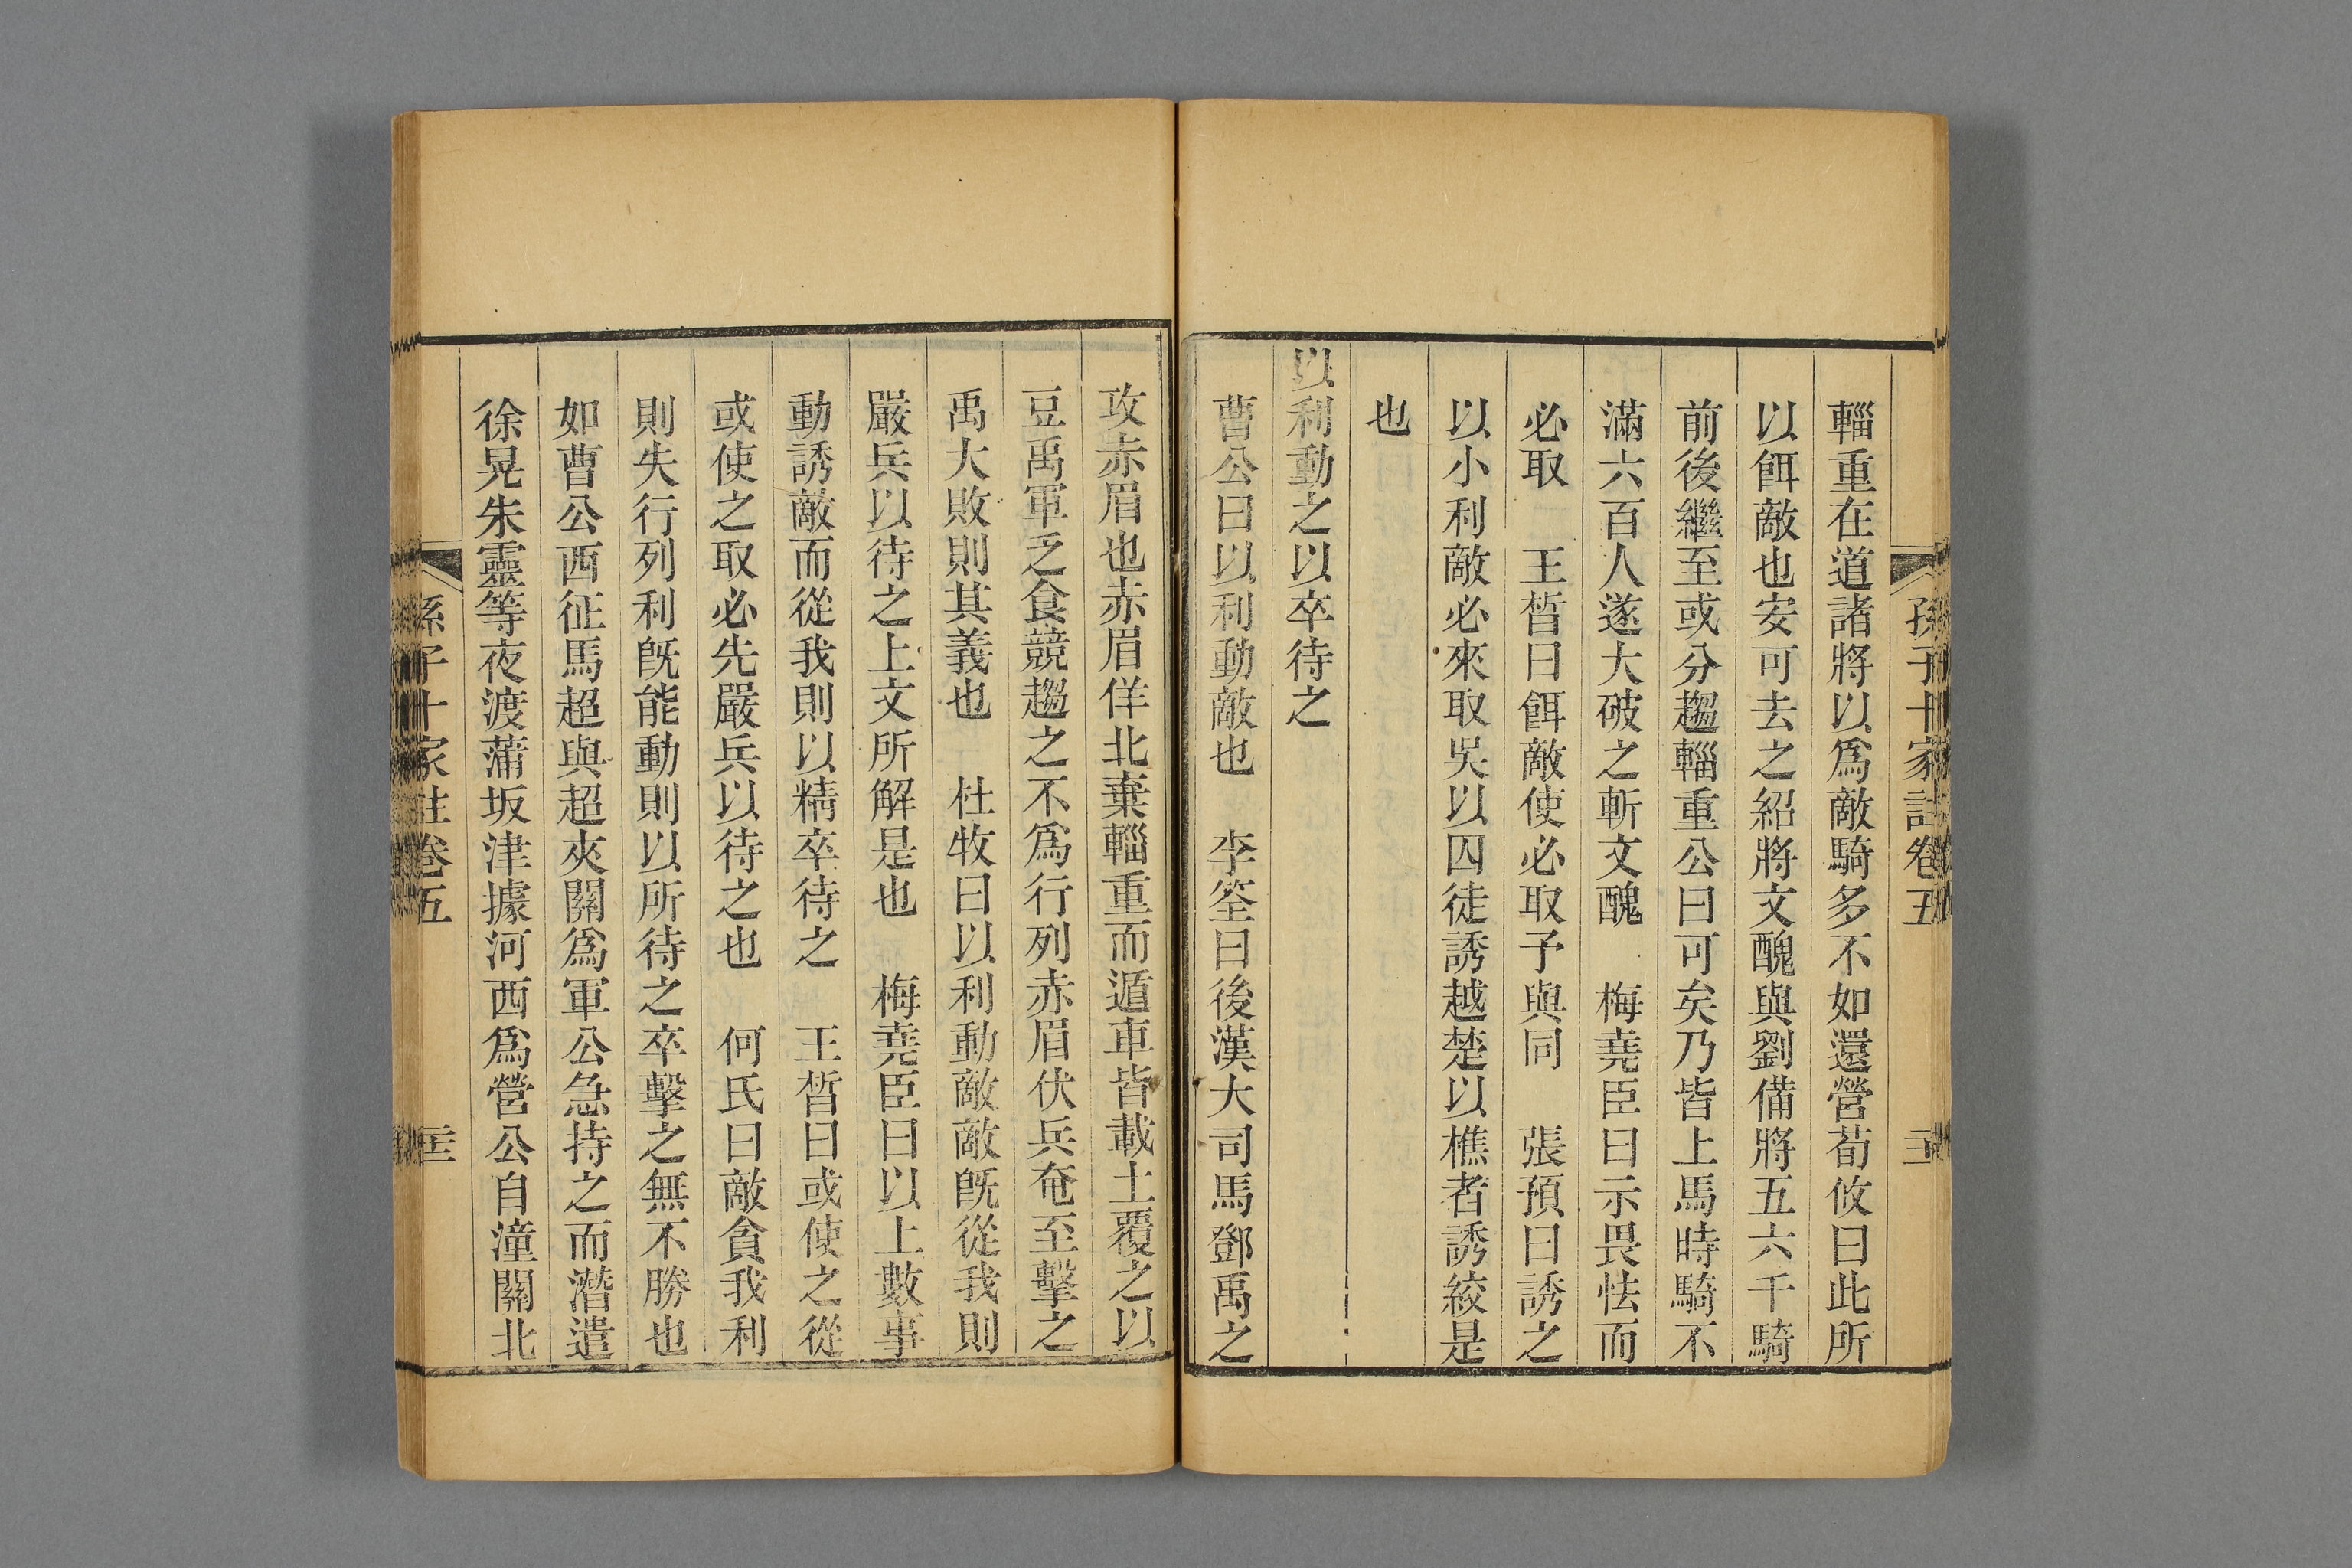 孫子十家註卷五
輜重在道諸將以爲敵騎多不如還營荀攸曰此所
以餌敵也安可去之紹將文醜與劉備將五六千騎
前後繼至或分趨輜重公曰可矣乃皆上馬時騎不
滿六百人遂大破之斬文醜　梅堯臣曰示畏怯而
必取　王晳曰餌敵使必取予與同　張預曰誘之
以小利敵必來取吳以囚徒誘越楚以樵者誘絞是
也
以利動之以卒待之
曹公曰以利動敵也　李筌曰後漢大司馬鄧禹之
攻赤眉也赤眉佯北棄輜重而遁車皆載土覆之以
豆禹軍乏食競趨之不爲行列赤眉伏兵奄至擊之
禹大敗則其義也　杜牧曰以利動敵敵既從我則
嚴兵以待之上文所解是也　梅堯臣曰以上數事
動誘敵而從我則以精卒待之　王晳曰或使之從
或使之取必先嚴兵以待之也　何氏曰敵貪我利
則失行列利既能動則以所待之卒擊之無不勝也
如曹公西征馬超與超夾關爲軍公急持之而潛遣
徐晃朱靈等夜渡蒲坂津據河西爲營公自潼關北
孫子十家註卷五